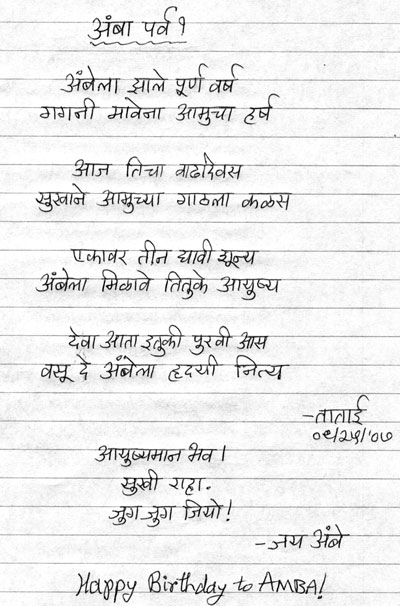 अंबा पर्व १
अंबेला झाले पूर्ण वर्ष
गगनी मावेना आमुचा हर्ष
आज तिचा वाढदिवस
सुखाने आमुच्या गाठला कळस
एकावर तीन द्यावी शून्य
अंबेला मिळावे तितुके आयुष्य
देवा आता इतुकी पुरवी आस
वसू दे अंबेला हृदयी नित्य
-ताताई
०९/२५/'०७
आयुष्यमान भव।
सुखी राहा.
जुग जुग जियो!
-जय अंबे
Happy Birthday to AMBA!